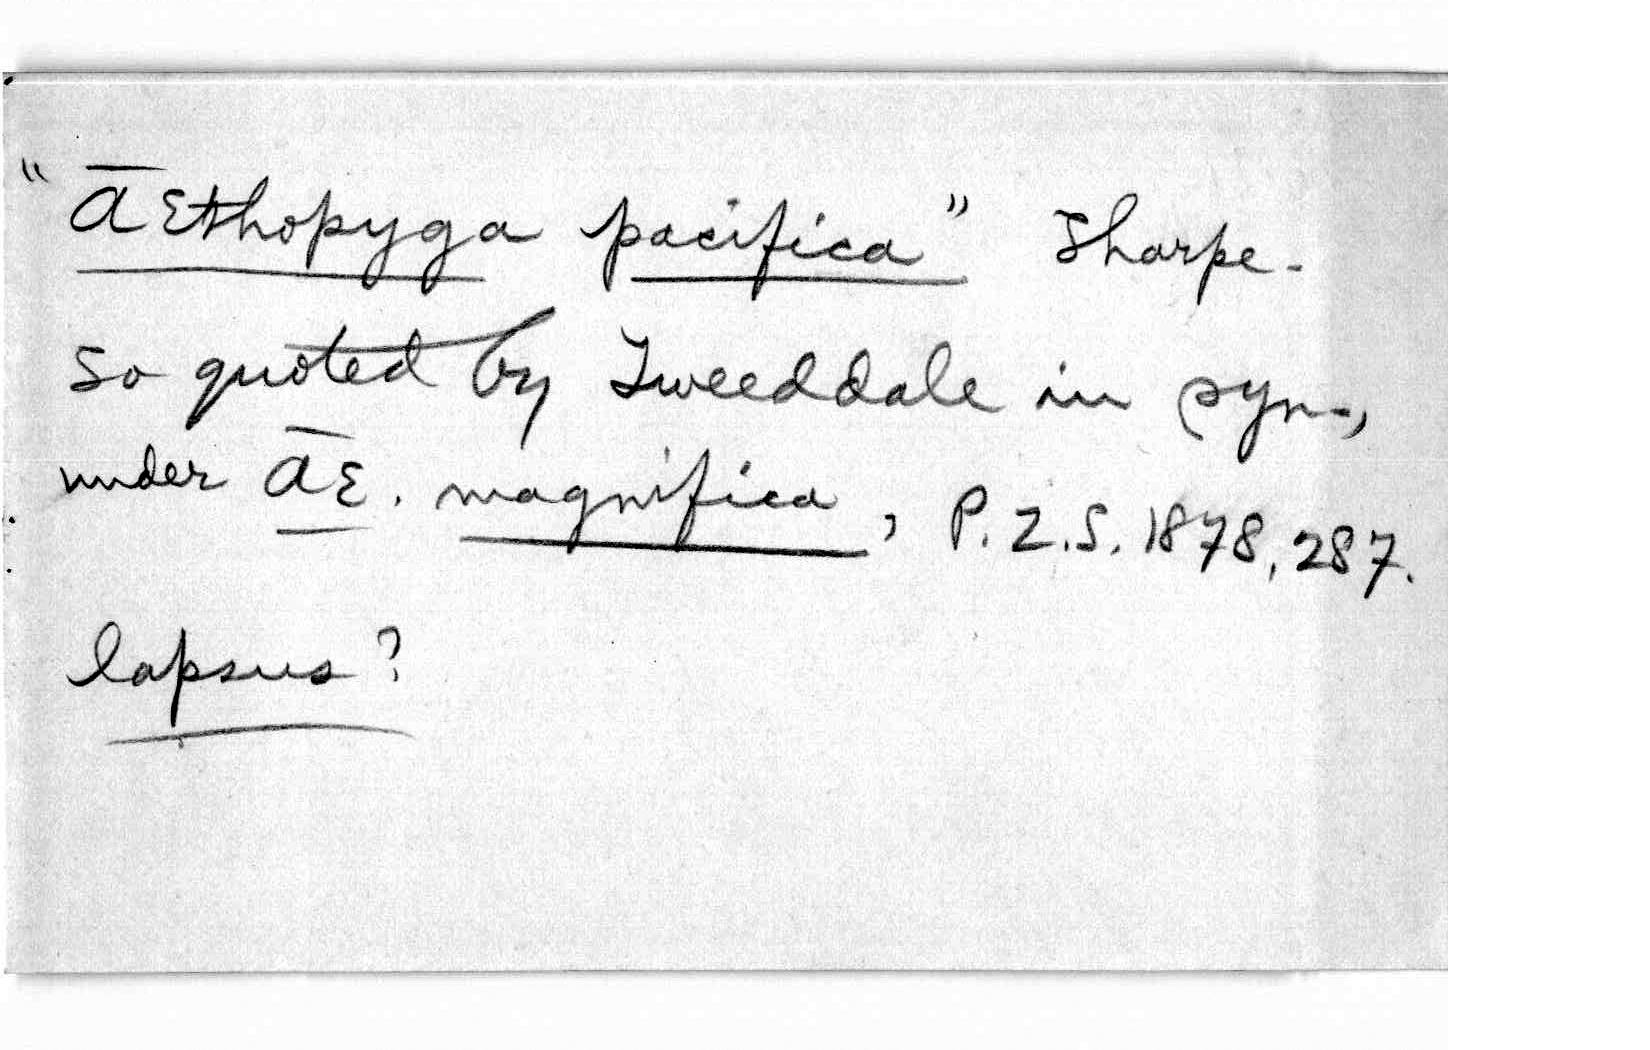 "Aethopyga pacifica" Sharpe -
so quoted by Tweeddale in syn.,
under Ae. magnifica, P.Z.S. 1878, 287.
lapsus?